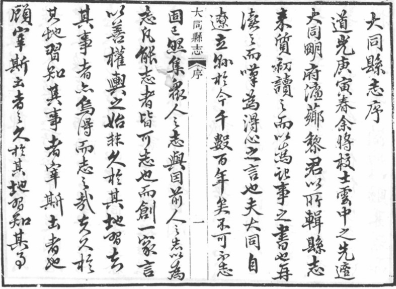 大同縣志序
道光庚寅春余將校士雲中之先適
大同明府滬薌黎君以所輯縣志
來質初讀之而以為記事之書也再
讀之而嘆為得心之言也夫大同自
遼立縣於今千數百年矣不可不志
大同縣志 序 一
固已然集眾人之志與因前人之志以為
志凡縣志者皆可志也而創一家言
以善權輿之始非久於其地習知
其事者亦烏得而志之哉夫久於
其地習知其事者宰斯土者也
顧宰斯土者之久於其地習知其事